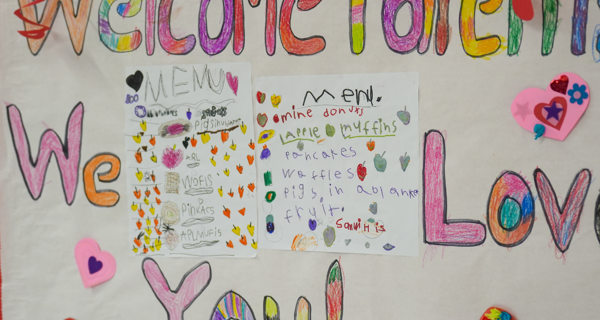 Welcome Parents
We Love
You!
MENU
WOFIS
PinKACS
APLMUFiS
Menu.
mine donuts
Apple muffins
pancakes
waffles
pigs in a blanke
fruit.
Sanwihis